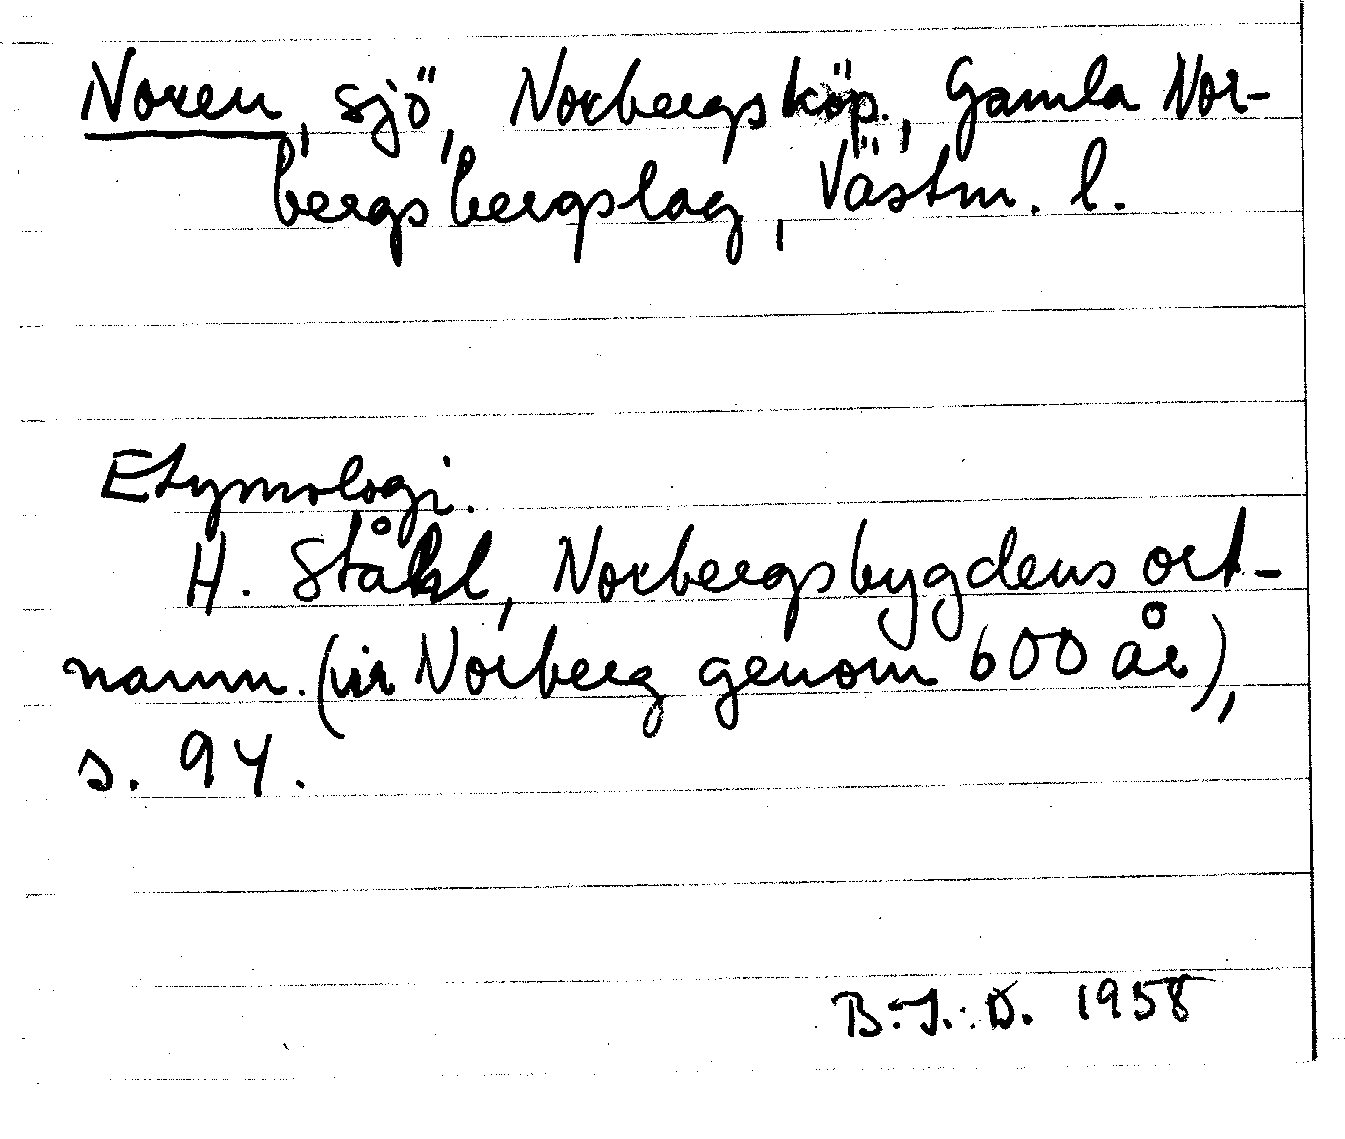 Noren, sjö, Norbergs köp., Gamla Nor-
bergs bergslag, Västm. l.
Etymologi.
H. Ståhl, Norbergsbygdens ort-
namn. (ur Norberg genom 600 år),
s. 94.
B.-I. D. 1958